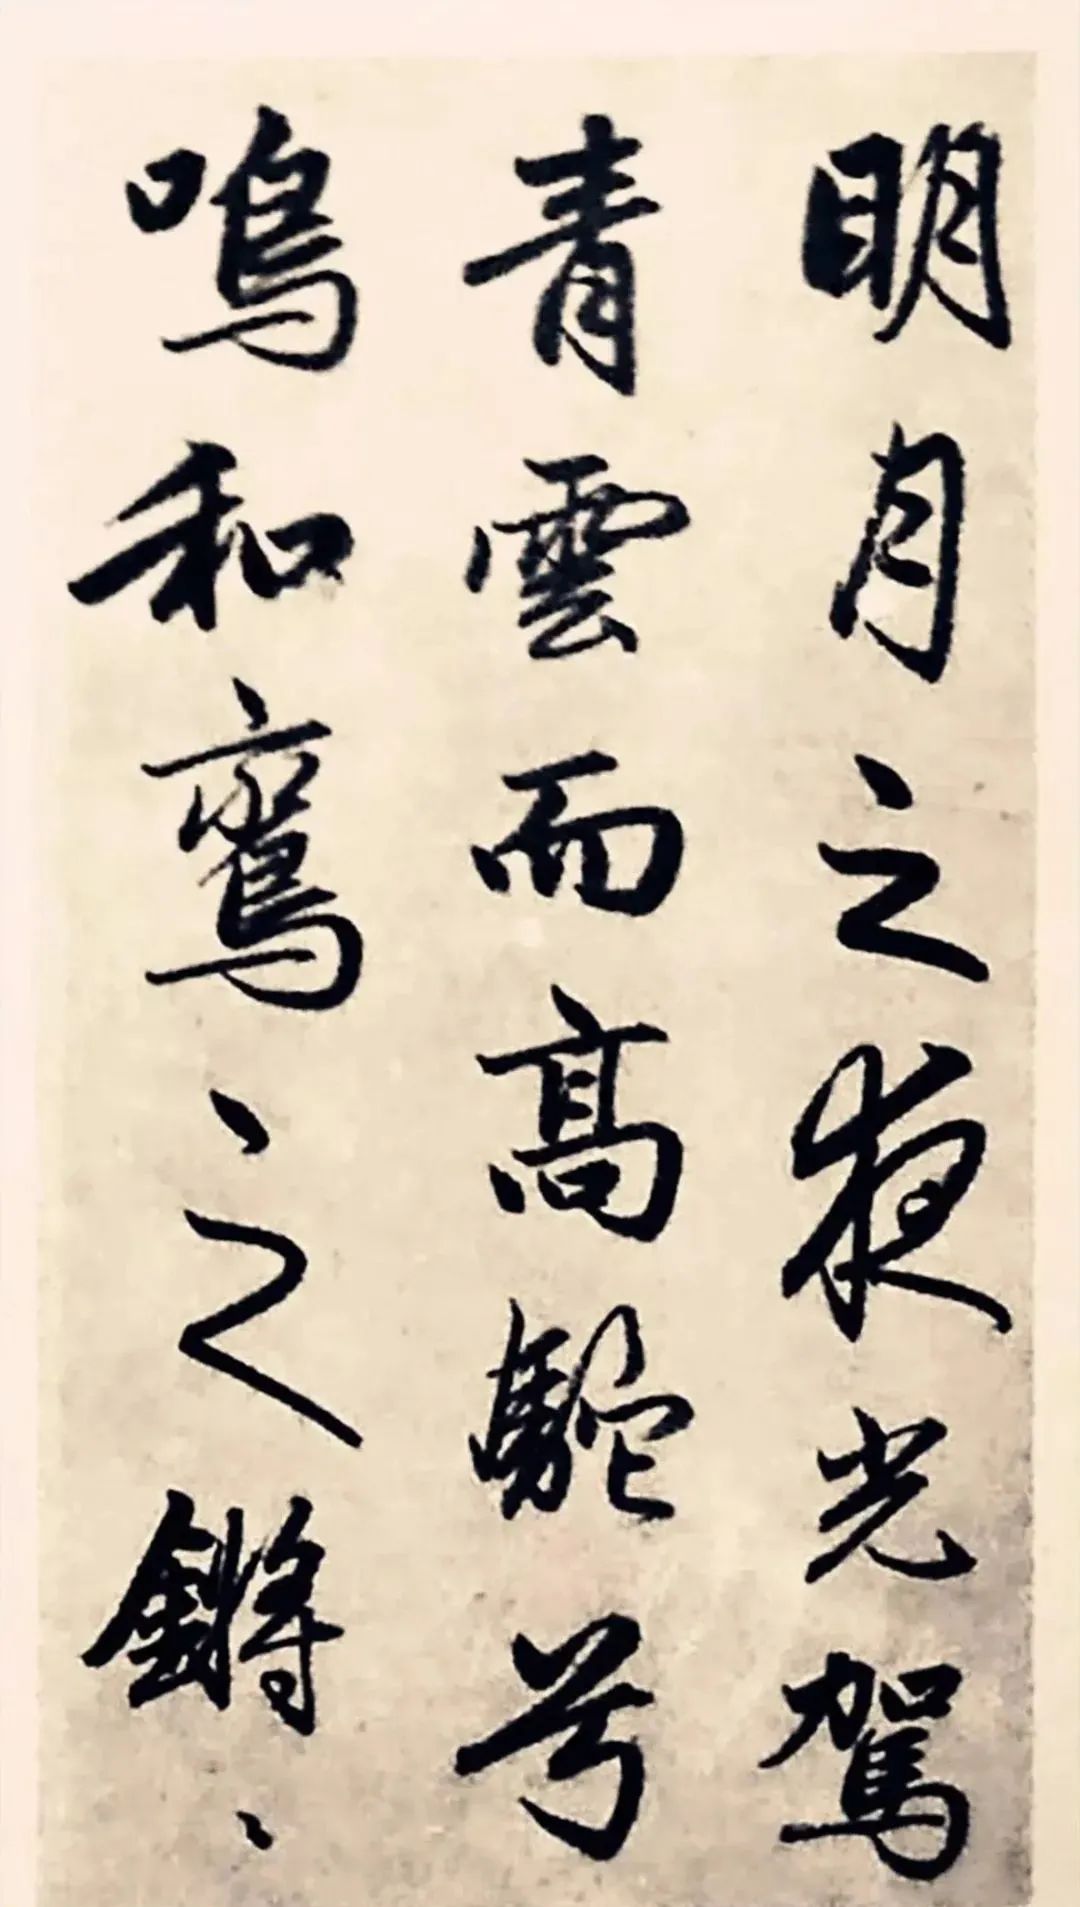 明月之夜光駕
青雲而高駝兮
鳴和鸞之鏘、